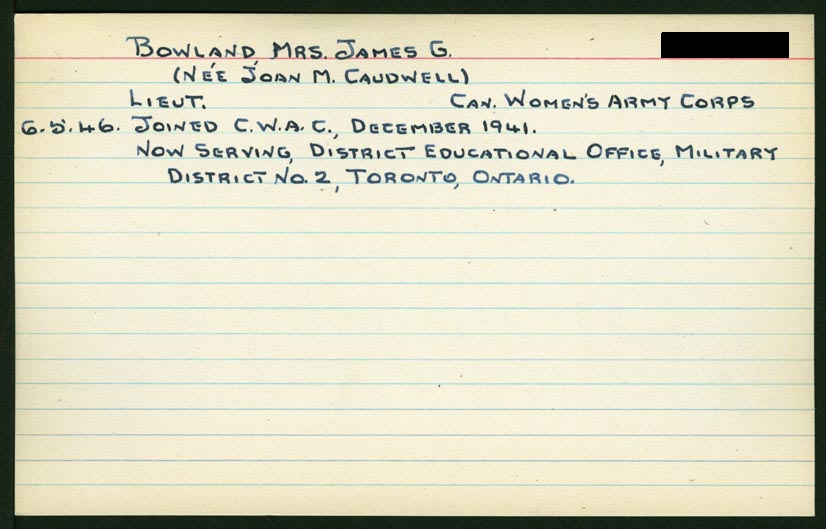 BOWLAND, MRS. JAMES G.
(NÉE JOAN M. CAUDWELL)
LIEUT. CAN. WOMEN'S ARMY CORPS
6.5.46. JOINED C.W.A.C., DECEMBER 1941.
NOW SERVING, DISTRICT EDUCATIONAL OFFICE, MILITARY
DISTRICT NO. 2, TORONTO, ONTARIO.